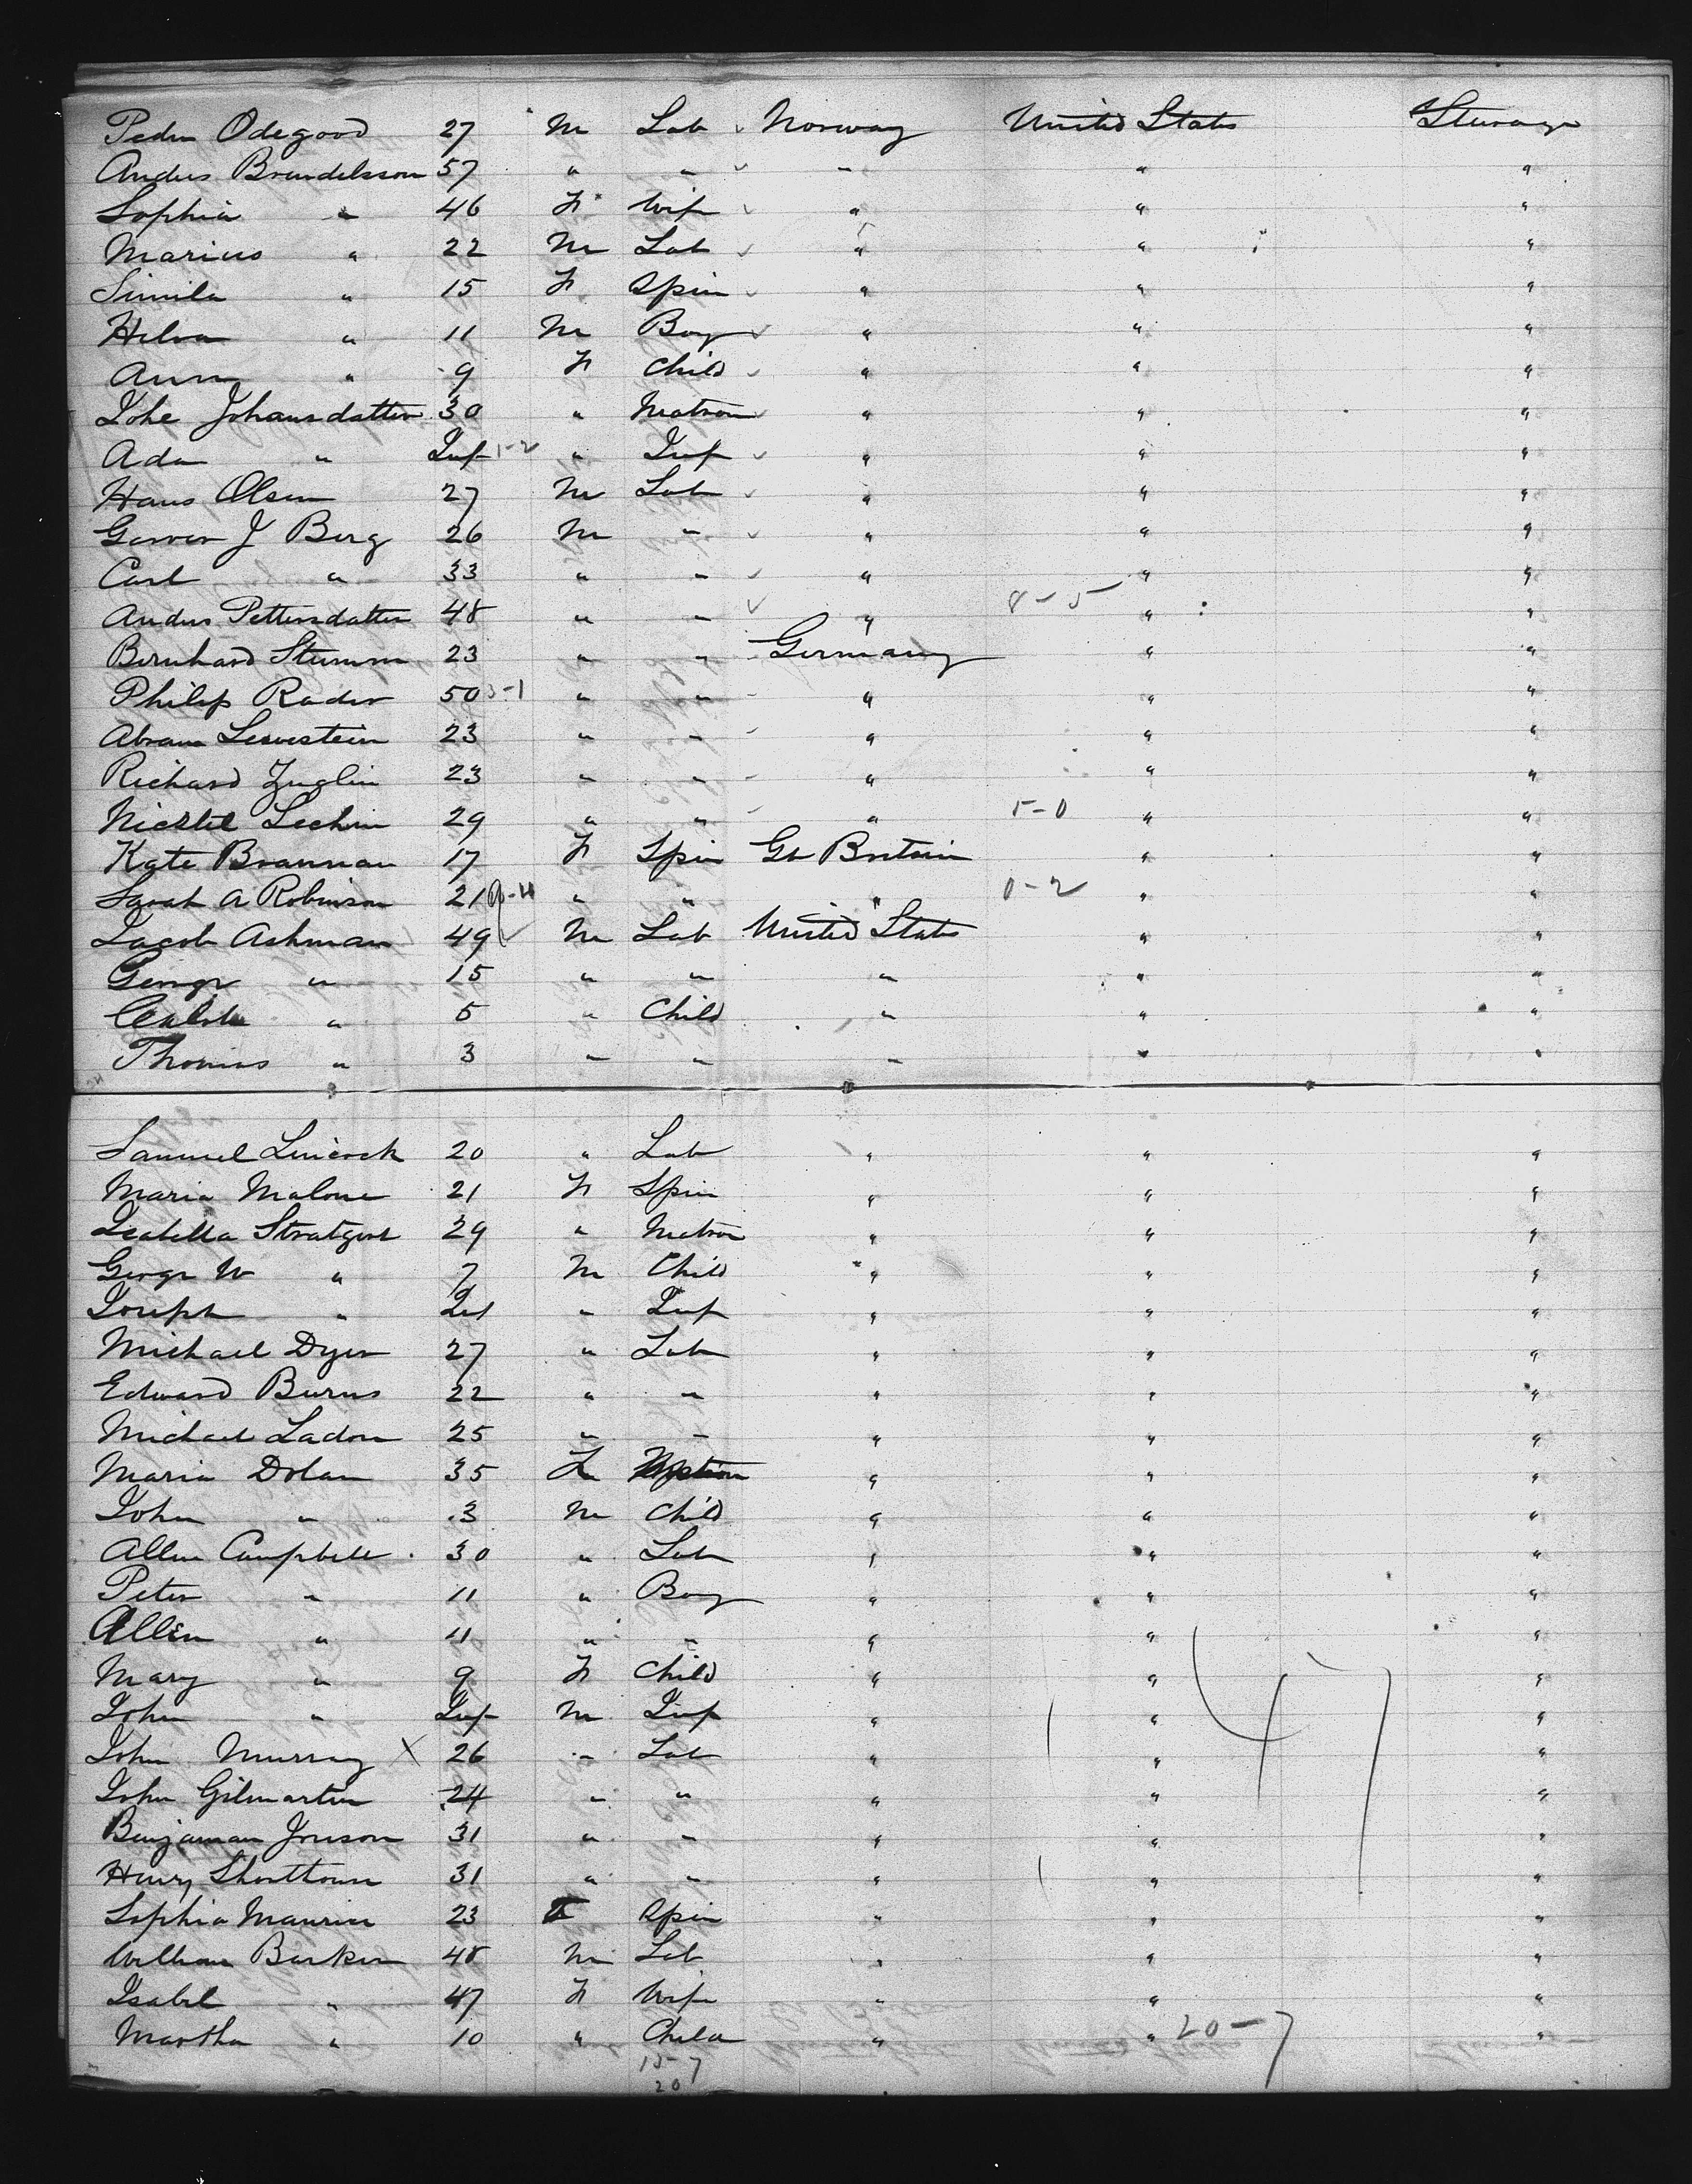 Peder Odegood 27 M Lab Norway United States Steerage
Andus Brendelsson 57 " " " " "
Sophia " 46 F Wife " " "
Marius " 22 M Lab " " "
Simila " 15 F Spin " " "
Hilva " 11 M Boy " " "
Ann " 9 F Child " " "
Johe Johansdatter 30 " Matron " " "
Ada " Inf 1-2 " Inf " " "
Hans Olsen 27 M Lab " " "
J Berg 26 M " " " "
Carl " 33 " " " " "
Andus Pettersdatter 48 " " " 8-5 " "
Bernhard Sturmm 23 " " Germany " "
Philip Rader 50 3-1 " " " " "
Abram Levestein 23 " " " " "
Richard Zuglin 23 " " " " "
Lechin 29 " " " 5-0 " "
Kate Brannan 17 F Spin Gt Britain " "
Sarah A Robinson 21 " " " 0-2 " "
Jacob Ashman 49 M Lab United States " "
George " 15 " " " " "
" 5 " Child " " "
Thomas " 3 " " " " "
Samuel 20 " Lab " " "
Maria Malone 21 F Spin " " "
Isabella 29 " Matron " " "
George W " 7 M Child " " "
Joseph " Inf " Inf " " "
Michael Dyer 27 " Lab " " "
Edward Burns 22 " " " " "
Michael Ladon 25 " " " " "
Maria Dolan 35 F Matron " " "
John " 3 M Child " " "
Allen Campbell 30 " Lab " " "
Peter " 11 " Boy " " "
Allen " 11 " " " " "
Mary " 9 F Child " " "
John " Inf M Inf " " "
John Murray X 26 " Lab " " "
John Gilmartin 24 " " " " "
Benjaman Jonson 31 " " " " "
Henry Shorthouse 31 " " " " "
Sophia Maurice 23 F Spin " " "
William Barker 48 M Lab " " "
Isabel " 47 F Wife " " "
Martha " 10 " Child " " 20-7 "
15-7
20
47